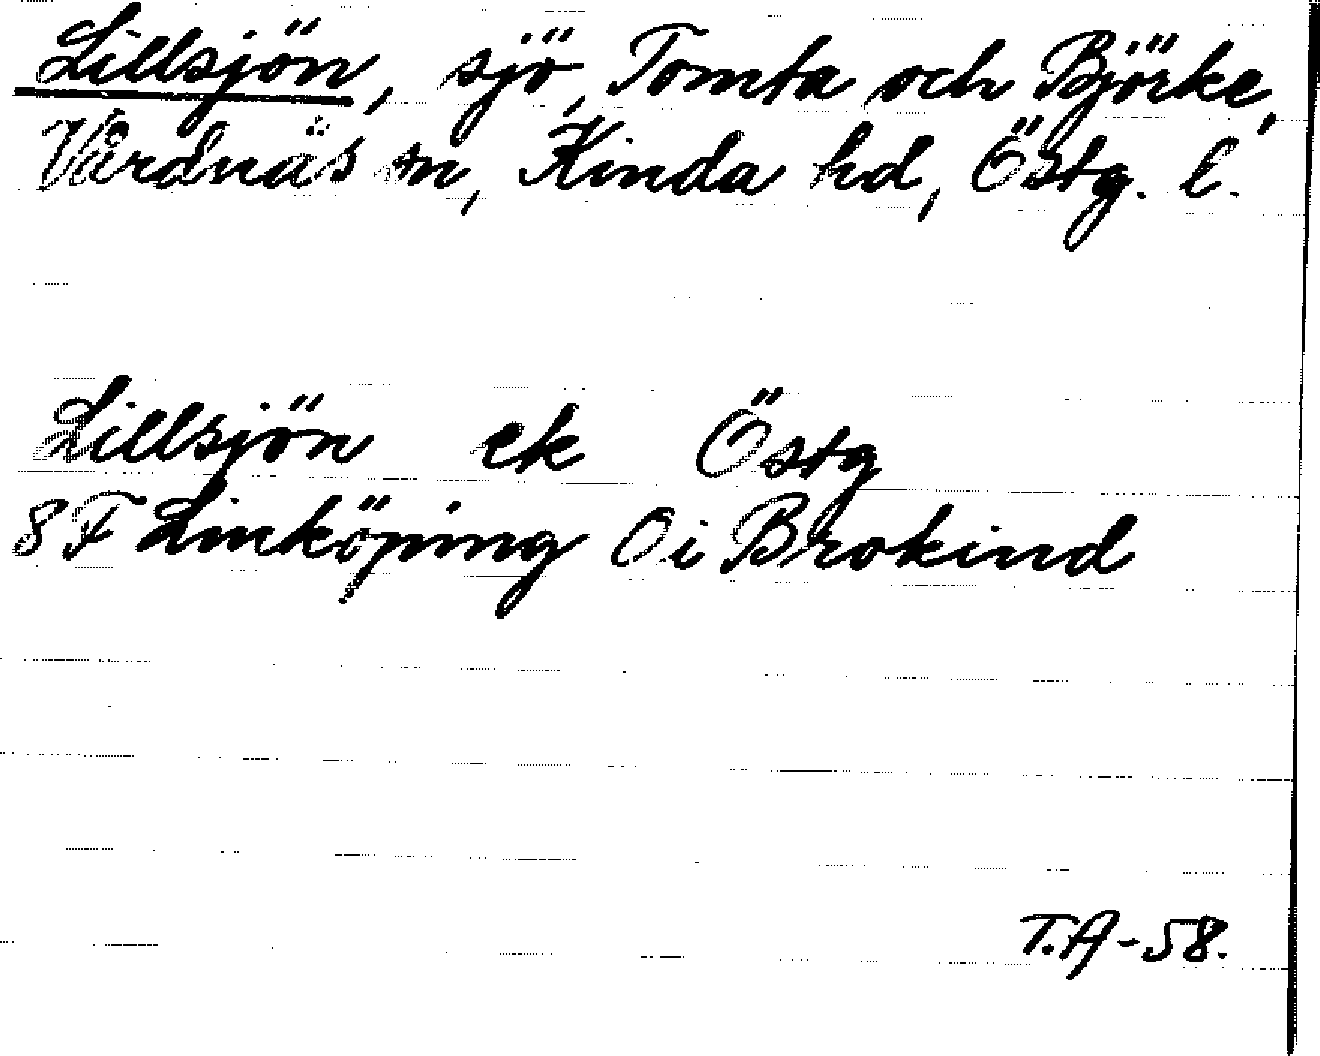 Lillsjön, sjö, Tomta och Björke,
Vårdnäs sn, Kinda hd, Östg. l.
Lillsjön ek Östg
8 F Linköping Oi Brokind
T.A-58.